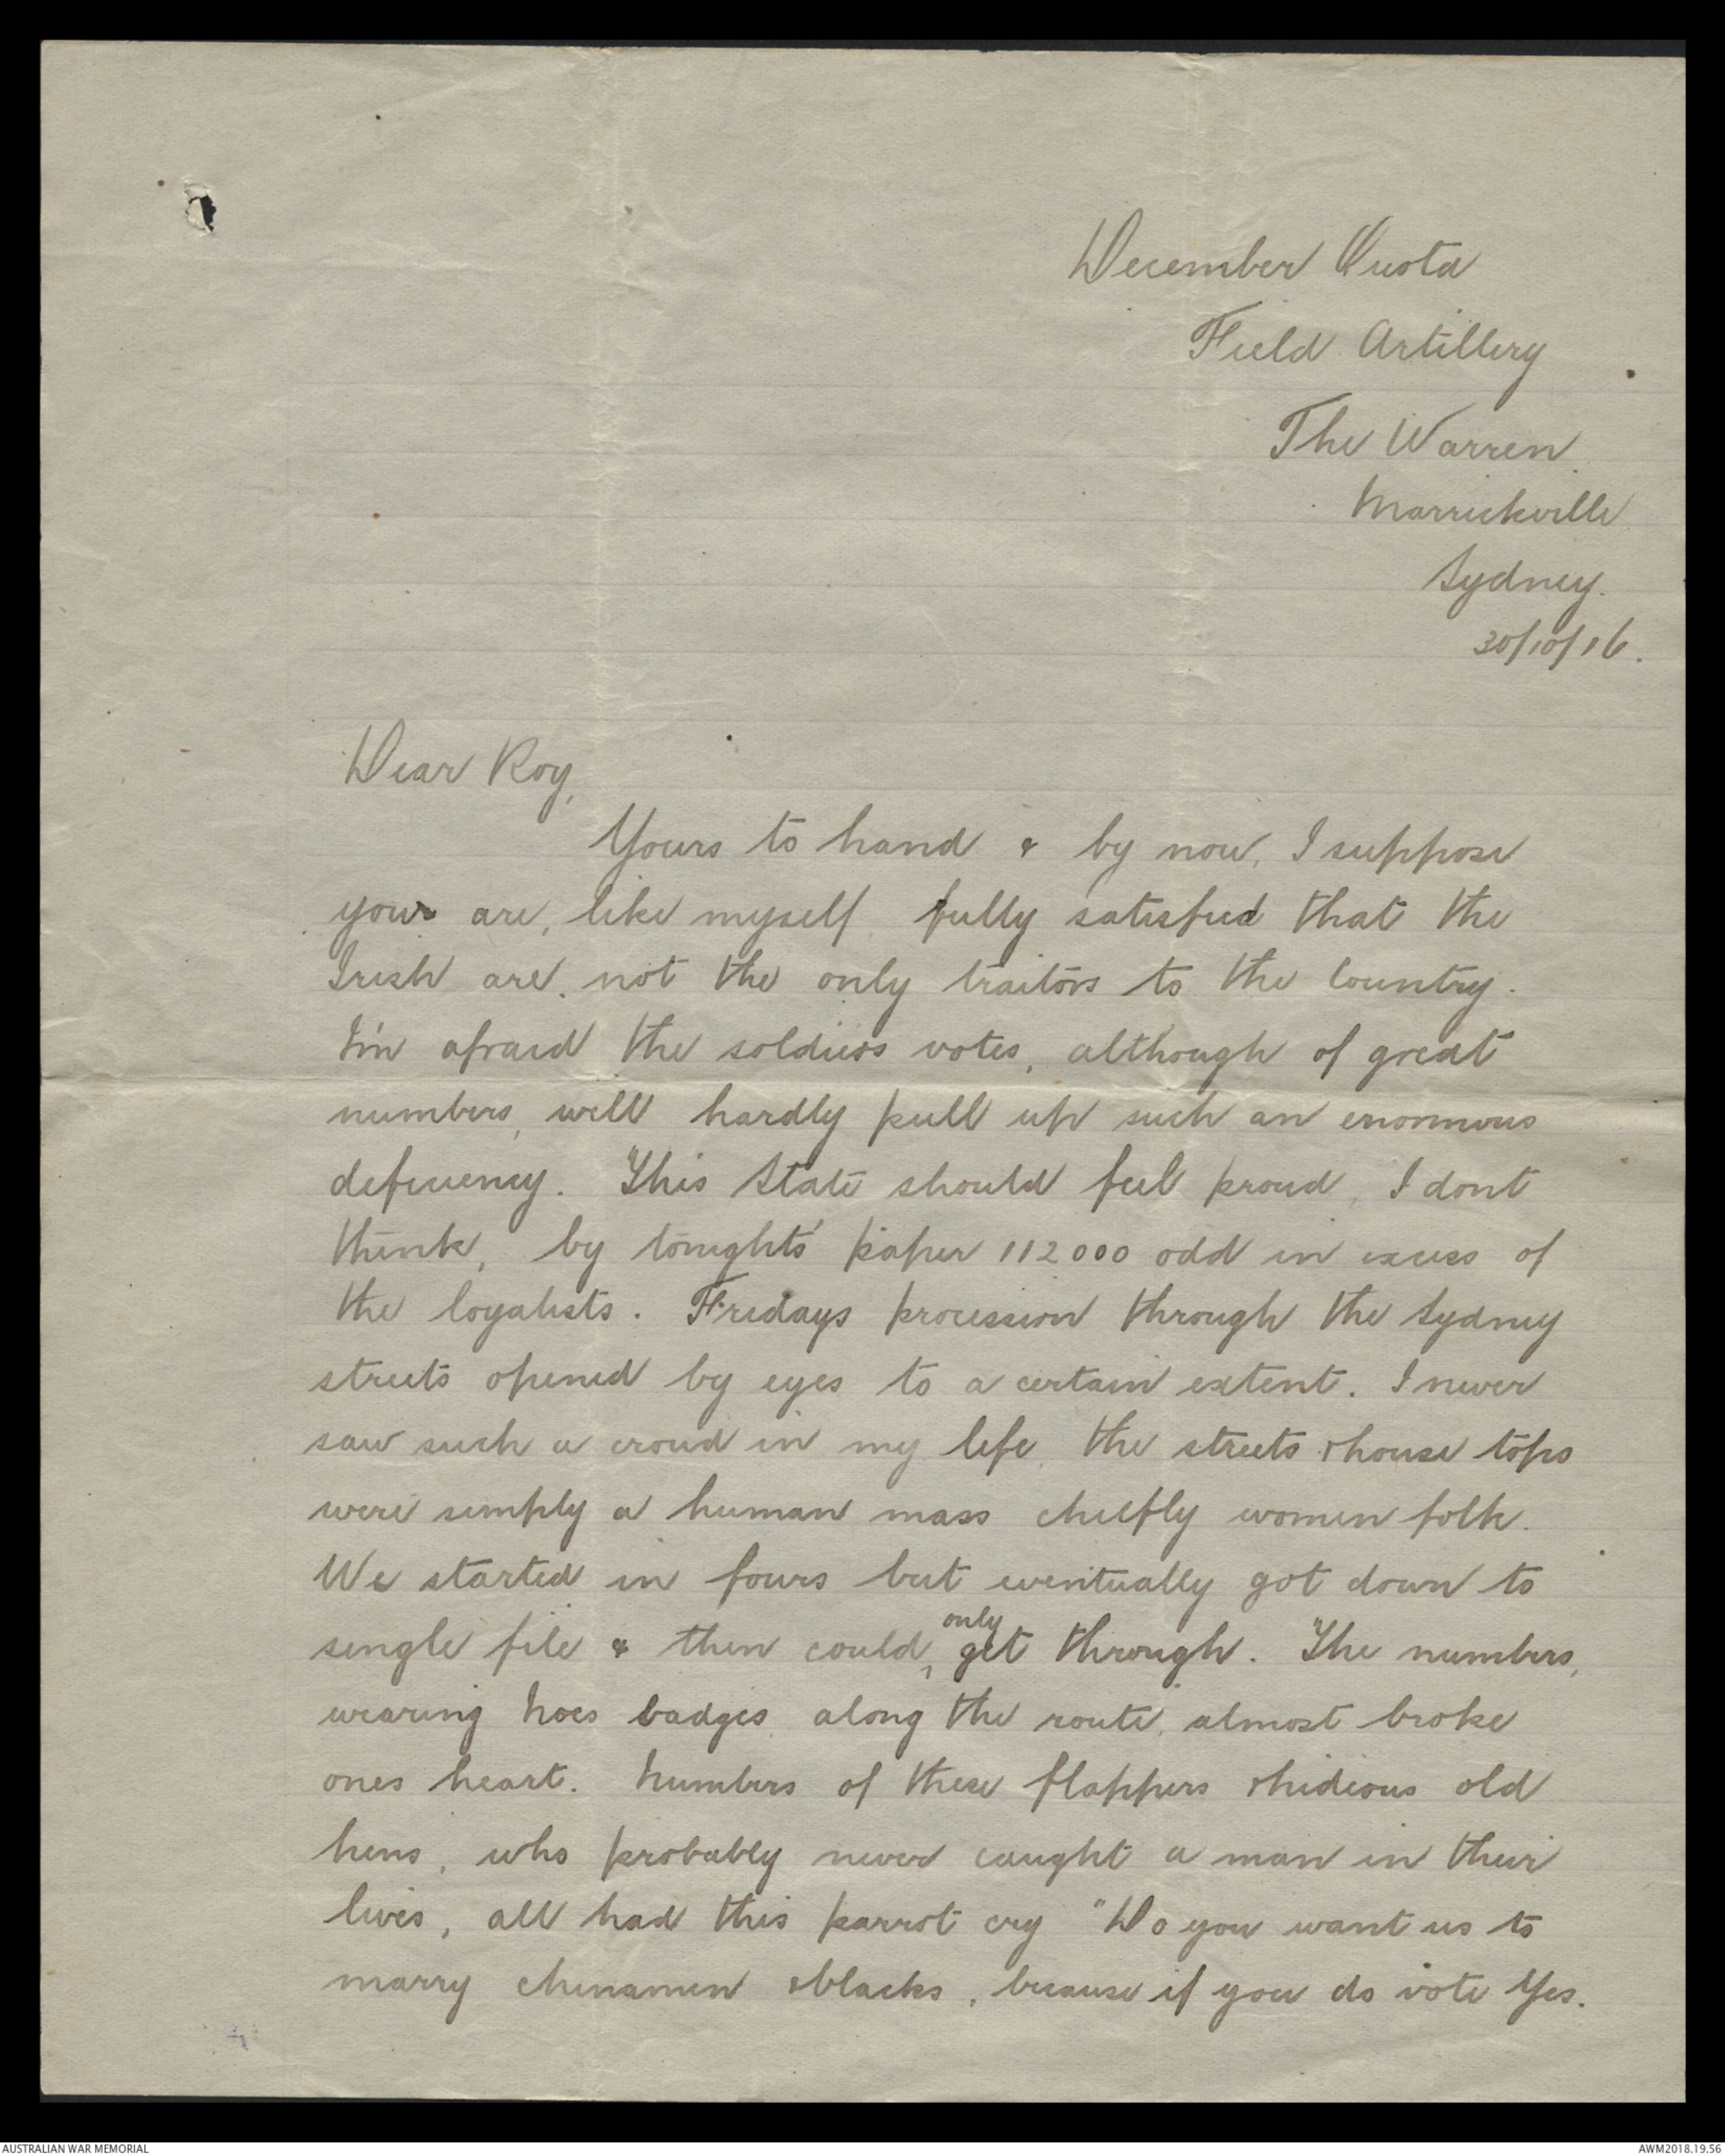 December Quota
Field Artillery
The Warren
Marrickville
Sydney.
30/10/16.
Dear Roy,
Yours to hand & by now, I suppose
your are, like myself fully satisfied that the
Irish are not the only traitors to the Country.
I'm afraid the soldiers votes, although of great
numbers, will hardly pull up such an enormous
deficiency. This State should feel proud, I dont
think, by tonight's paper 112000 odd in excess of
the loyalists. Fridays procession through the Sydney
streets opened by eyes to a certain extent. I never
saw such a croud in my life, the streets & house tops
were simply a human mass chiefly women folk.
We started in fours but eventually got down to
single file & then could only get through. The numbers,
wearing Noes badges along the route, almost broke
ones heart. Numbers of these flappers & hidious old
hens, who probably never caught a man in their
lives, all had this parrot cry "Do you want us to
marry chinamen & blacks, because if you do vote Yes.
AUSTRALIAN WAR MEMORIAL
AWM2018.19.56